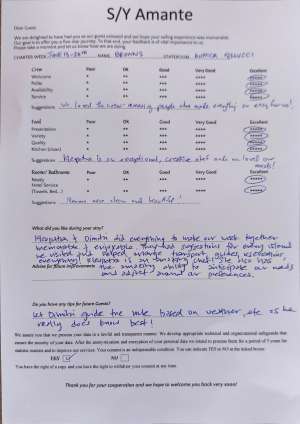 S/Y Amante
Dear Guest
We are delighted to have had you as our guest onboard and we hope your sailing experience was memorable.
Our goal is to offer you a five star journey. To that end, your feedback is of vital importance to us.
Please take a moment and let us know how we are doing.
CHARTER WEEK June 13-20th NAME BROWNS ITINERARY
Crew Poor OK Good Very Good Excellent
Welcome * ** *** **** *****
Polite * ** *** **** *****
Availability * ** *** **** *****
Service * ** *** **** *****
Suggestions We loved the crew amazing people who made everything so easy for us!
Food Poor OK Good Very Good Excellent
Presentation * ** *** **** *****
Variety * ** *** **** *****
Quality * ** *** **** *****
Kitchen (clean) * ** *** **** *****
Suggestions Kleopatra is an exceptional, creative chef and we loved our
meals!
Rooms/ Bathrooms Poor OK Good Very Good Excellent
Ready * ** *** **** *****
Hotel Service
(Towels, Bed...) * ** *** **** *****
Suggestions Rooms were clean and beautiful!
What did you like during your stay?
Kleopatra & Dimitri did everything to make our week together
memorable & enjoyable. They had suggestions for every island
we visited and helped arrange transport, guides, reservations
everything! Kleopatra is an amazing chef! She also has
Advise for future improvements the amazing ability to anticipate our needs
and adjust around our preferences.
Do you have any tips for future Guests?
Let Dimitri guide the route based on weather, etc as he
really does know best!
We assure you that we process your data in a lawful and transparent manner. We develop appropriate technical and organizational safeguards that
ensure the security of your data. After the anonymization and encryption of your personal data we intend to process them for a period of 5 years for
statistic reasons and to improve our services. Your consent is an indispensable condition. You can indicate YES or NO at the linked boxes
YES NO
You have the right of a copy and you have the right to withdraw your consent at any time.
Thank you for your cooperation and we hope to welcome you back very soon!